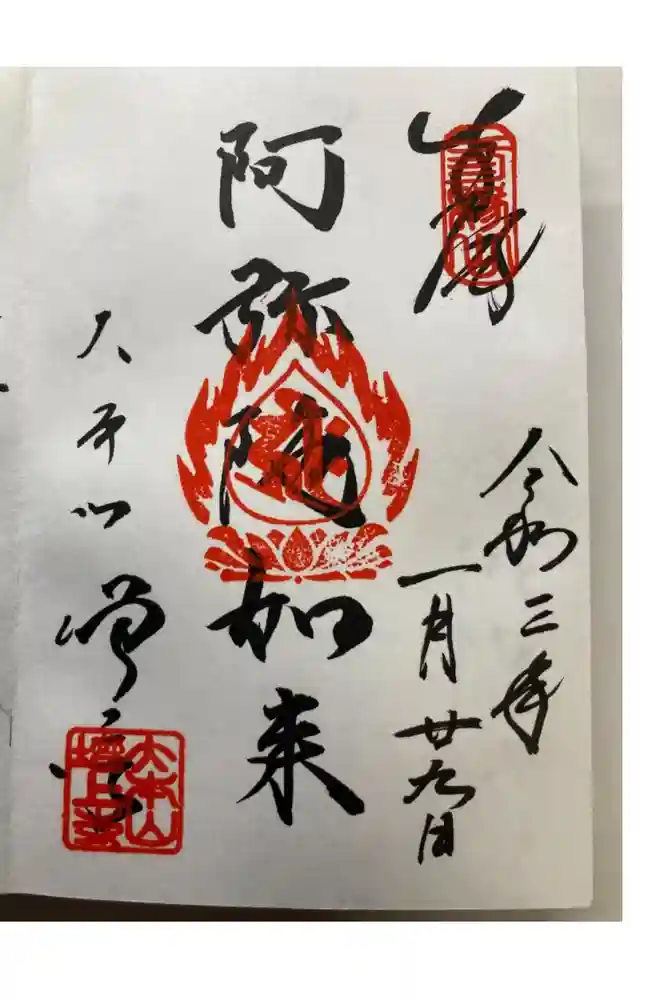 令和三年
一月廿九日
阿弥陀如来
大本山
増上寺
大本山
増上寺